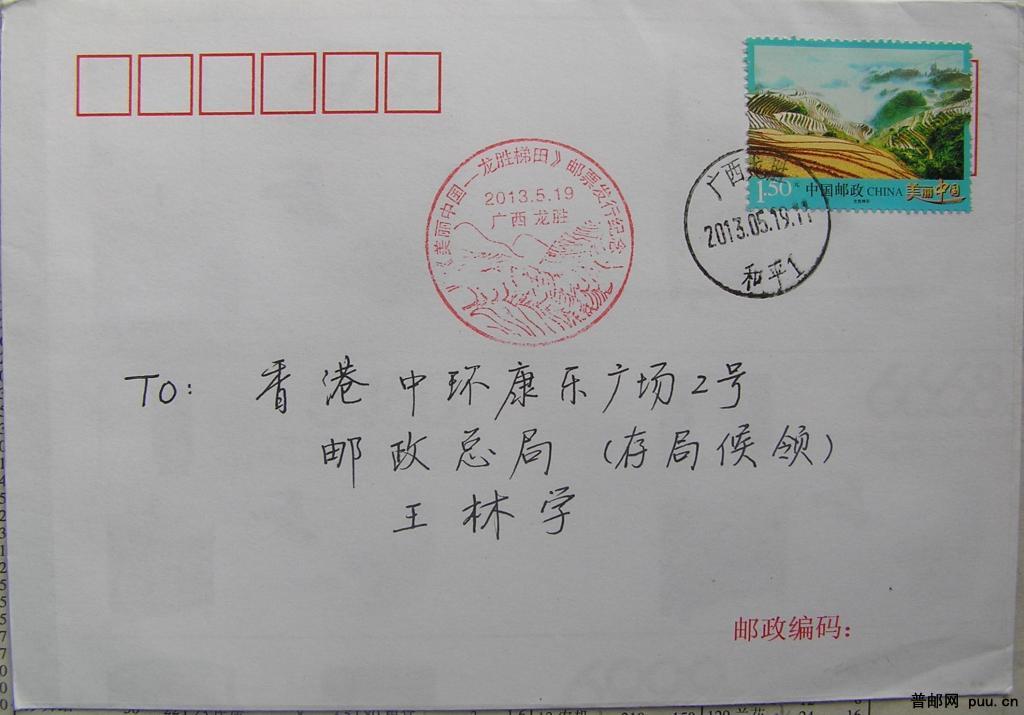 《美丽中国—龙胜梯田》邮票发行纪念
2013.5.19
广西 龙胜
1.50元 中国邮政 CHINA 美丽中国
广西龙胜
2013.05.19.11
和平1
TO: 香港中环康乐广场2号
邮政总局（存局候领）
王林学
邮政编码：
普邮网 puu.cn